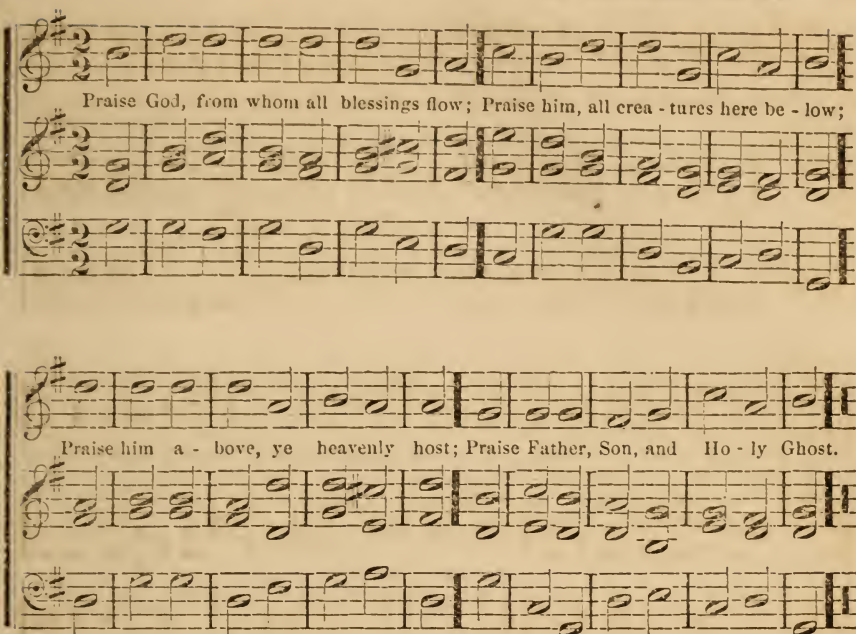 Praise God, from whom all blessings flow; Praise him, all crea - tures here be - low;
Praise him a - bove, ye heavenly host; Praise Father, Son, and Ho - ly Ghost.